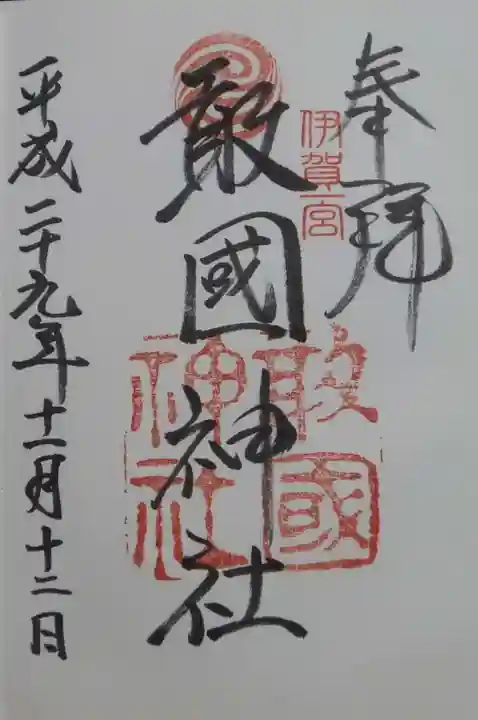 奉拝
伊賀一宮
敢國神社
敢國
神社
平成二十九年十一月十二日